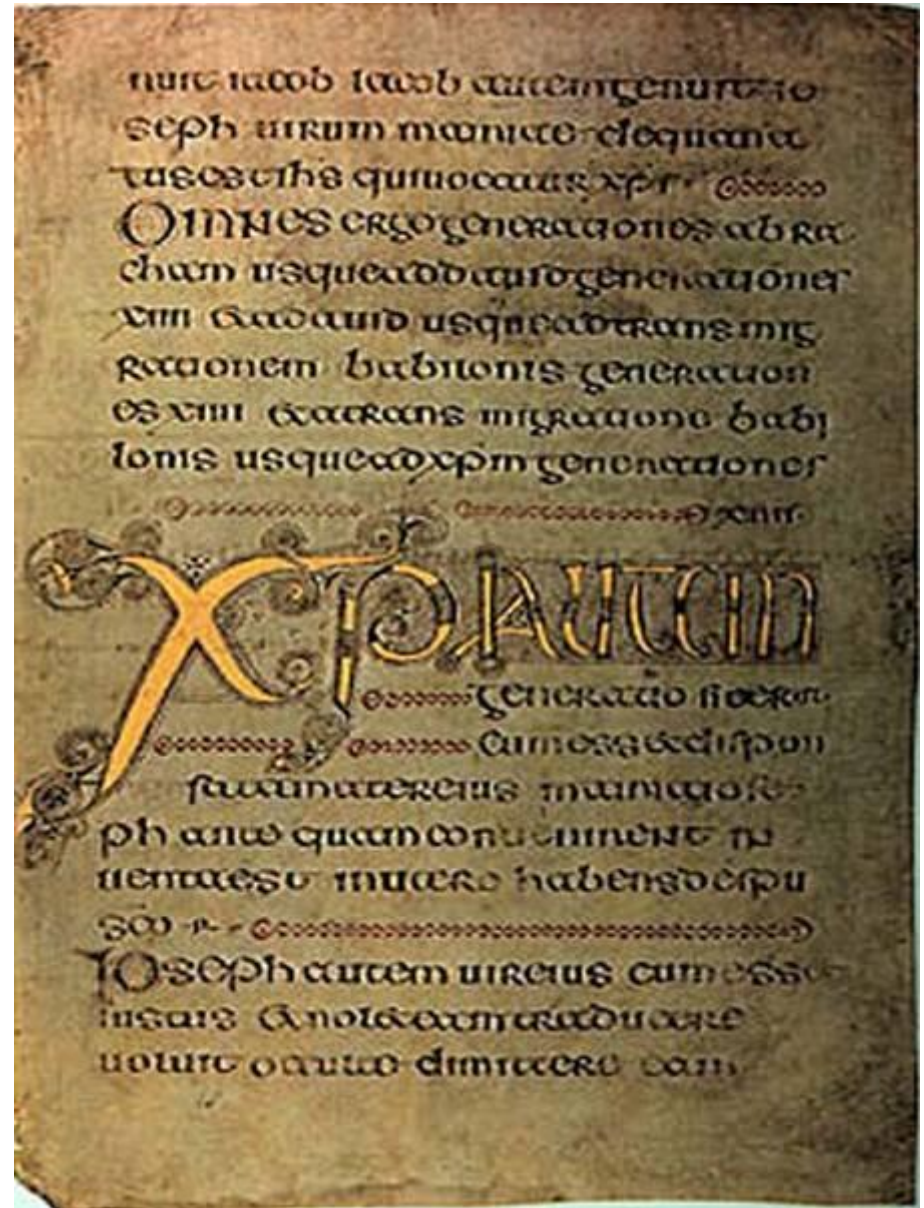 nuit iacob Iacob autem genuit io
seph uirum mariae de qua na
tus est ihs qui uocatur xps
Omnes ergo generationes ab ra
cham usque ad dauid generationes
xiiii & a dauid usque ad transmig
rationem babilonis generation
es xiiii & a trans migratione babi
lonis usque ad xpm generationes
xiiii
XPI AUTEM
generatio sic erat
cum ess& dispon
sata mater eius maria iose
ph ante quam conuenirent in
uenta est in utero habens de spu
sco
Ioseph autem uir eius cum esse
iustus & nol& eam traducere
uoluit occulte dimittere eam